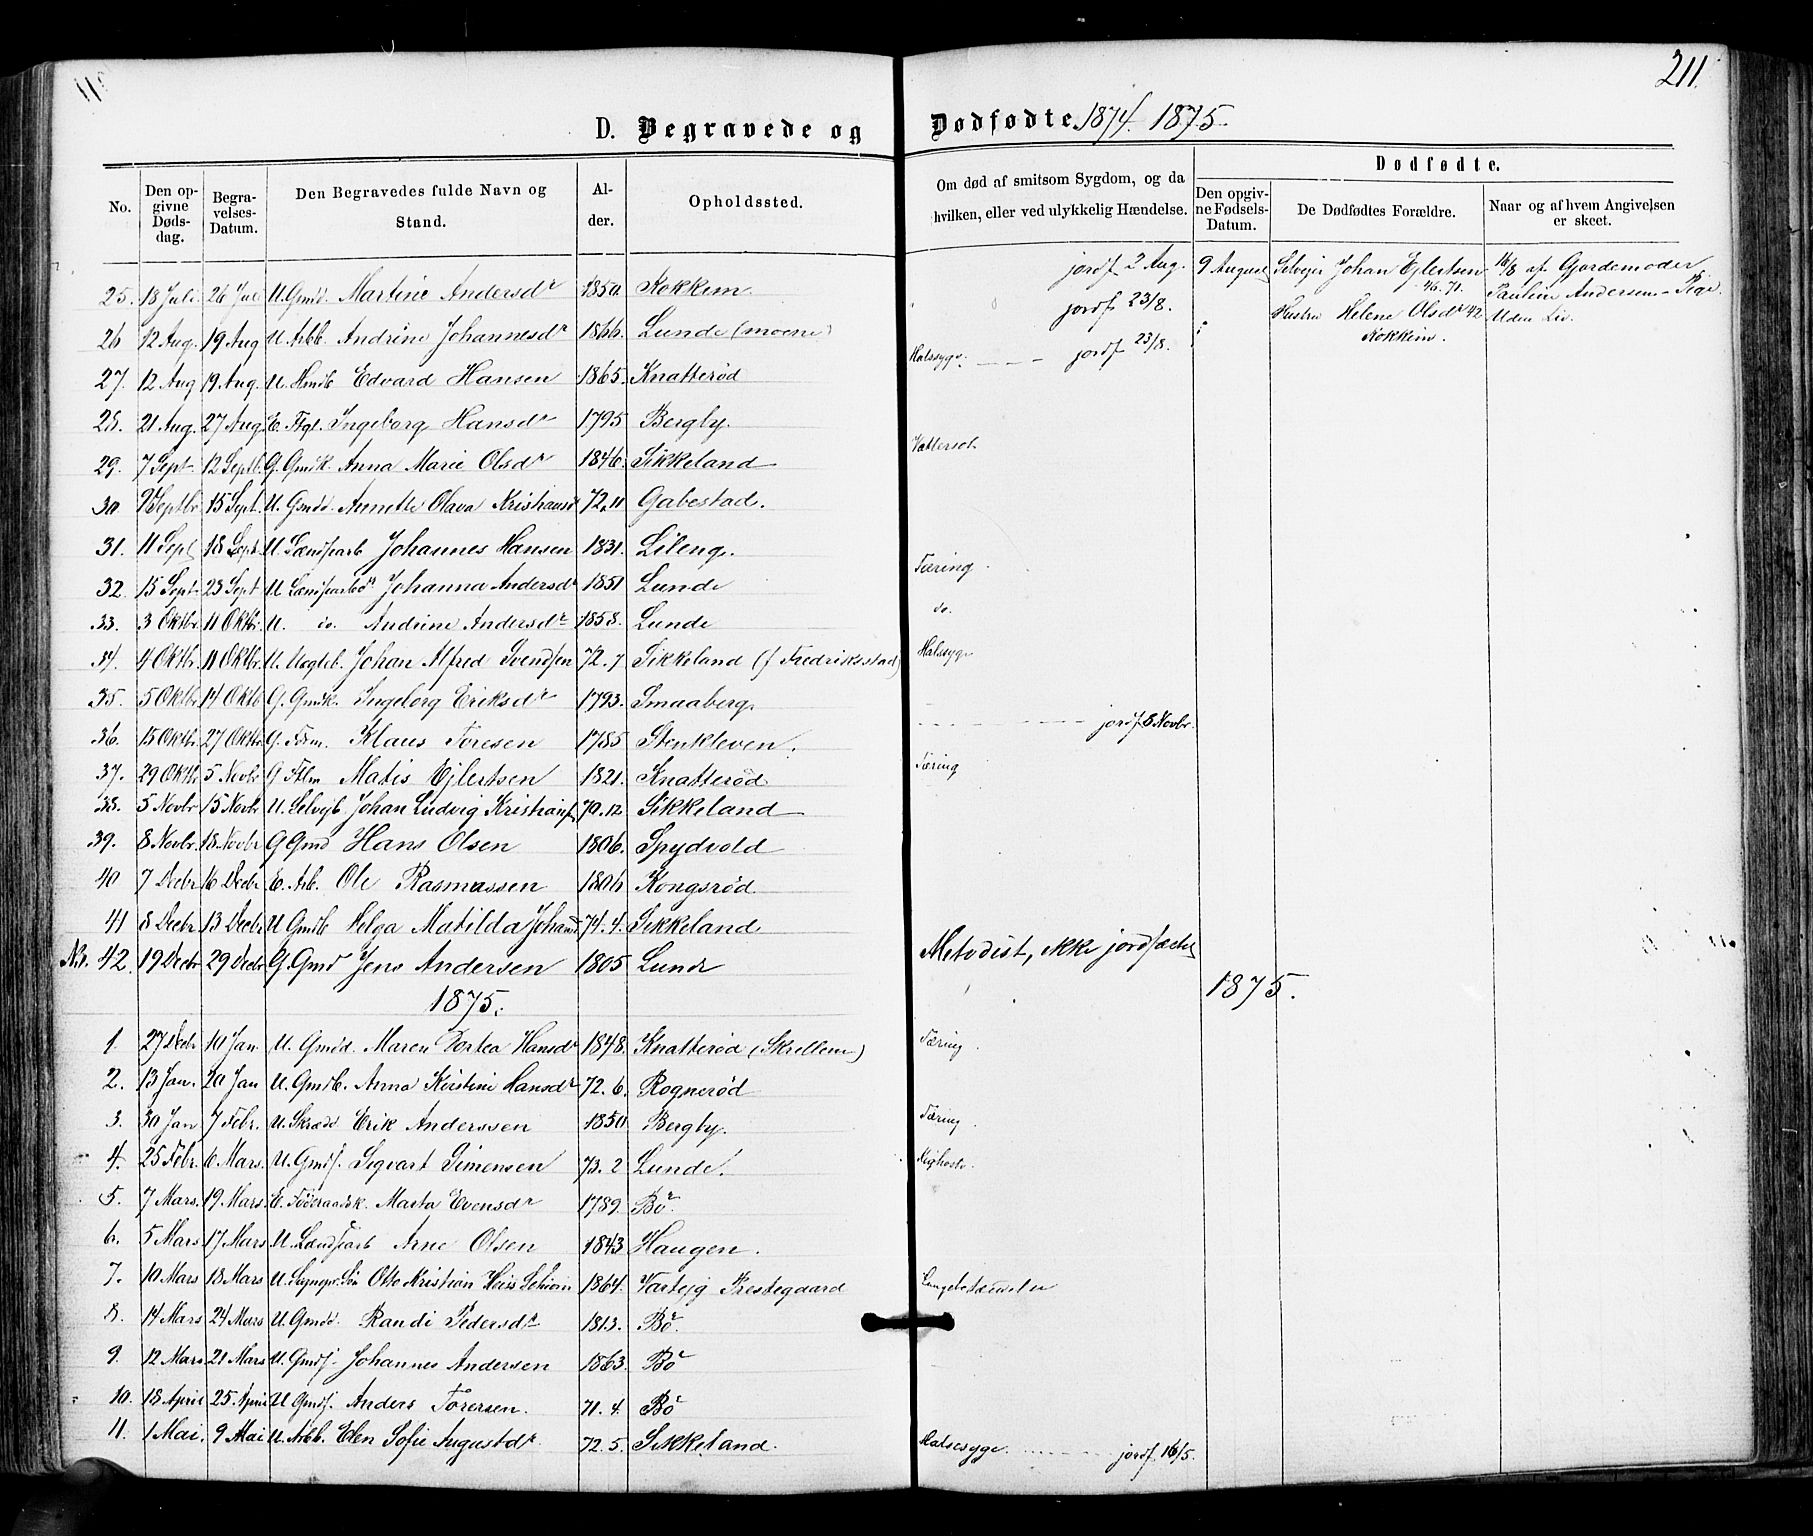 211.
D. Begravede og Dødfødte. 1874. 1875.
No.
Den opgivne Dødsdag.
Begravelses-Datum.
Den Begravedes fulde Navn og Stand.
Alder.
Opholdssted.
Om død af smitsom Sygdom, og da hvilken, eller ved ulykkelig Hændelse.
Dødfødte.
Den opgivne Fødsels-Datum.
De Dødfødtes Forældre.
Naar og af hvem Angivelsen er skeet.
25. 18 Juli 26 Jul U. Gmd. Martine Andersdr 1850 Kokkim jordf 2 Aug. 9 August Selveier Johan Ejlertsen 16/8 af Gjordemoder
26 12 Aug. 19 Aug U. Arb. Andrine Johannesdr 1866. Lunde (moene) jordf 23/8. Hustru Helene Olsdr 42 Pauline Andersen - Pige
Kokkim. Uden Liv.
27. 12 Aug 19 Aug. U. Hmdb Edvard Hansen 1865. Knatterød Halssyge. jordf 23/8.
28. 21 Aug. 27 Aug. E. Ftgl. Ingeborg Hansdr 1795 Bergby.
29. 7 Sept 12 Septb. G. Gmdk. Anna Marie Olsdr 1846. Sikkeland Vattersot
30 9 Septbr 15 Sept. U. Gmdd. Annette Olava Kristiansd 72.11 Gabestad.
31. 11 Sept 18 Sept. U Lændsarb Johannes Hansen 1831. Lileng.
32. 15 Sept. 23 Sept U Lændsarbdr Johanna Andersdr 1851 Lunde Tæring
33. 3 Oktbr. 11 Oktbr. U. do. Andrine Andersdr 1858. Lunde do.
34. 4 Oktbr. 11 Oktbr. U. Uegteb. Johan Alfred Svendsen 72.7 Sikkeland (f Fredriksstad) Halssyge
35. 5 Oktbr. 14 Oktb G. Gmdk. Ingeborg Eriksdr 1793. Smaaberg.
36. 15 Oktbr 27 Oktbr G. Klaus Toresen 1785 Stenkleven. jordf. 8 Novbr.
37. 29 Oktbr 5 Novbr G Matis Ejlertsen 1821. Knatterød Tæring
38. 5 Novbr 15 Novbr U. Selvgb. Johan Ludvig Kristians 70.12 Sikkeland
39. 8 Novbr. 18 Novbr G Gmd Hans Olsen 1806. Spydvold
40 7 Decbr 16 Decbr E. Arb. Ole Rasmussen 1806 Kongsrød
41 8 Decbr. 13 Decbr U Gmdb Helga Matilda Johansd 74.4. Sikkeland
No. 42. 19 Decbr 29 Decbr G. Gmd Jens Andersen 1805 Lunde Metodist, ikke jordfæstet
1875. 1875.
1. 27 Decbr 10 Jan. U. Gmdd. Maren Dortea Hansdr 1848. Knatterød (Skrellem) Tæring
2. 13 Jan. 20 Jan U. Gmdb. Anna Kirstine Hansdr 72.6. Rognerød
3. 30 Jan 7 Febr. U. Skrædd Erik Anderssen 1850 Bergby. Tæring
4. 25 Febr. 6 Mars. U. Gmds. Sigvart Simensen 73.2 Lunde. Kighoste.
5. 7 Mars. 19 Mars. E. Føderaadsk. Marta Evensdr 1789. Bø.
6. 5 Mars 17 Mars U. Lændsarb Arne Olsen 1843 Haugen.
7. 10 Mars 18 Mars U. Sogngr. Søn Otto Kristian Heiss Schiøn 1864. Varteig Prestegaard Lungebetændelse
8. 14 Mars 24 Mars U. Gmdd. Randi Pedersdr 1813. Bø.
9. 12 Mars 21 Mars U. Gmds. Johannes Andersen 1863. Bø
10. 18 April 25. April U Gmds. Anders Torersen. 71.4. Bø
11. 1 Mai. 9 Mai U. Arbb. Elen Sofie Augustdr. 72.5. Sikkeland. Halssyge. jordf. 16/5.